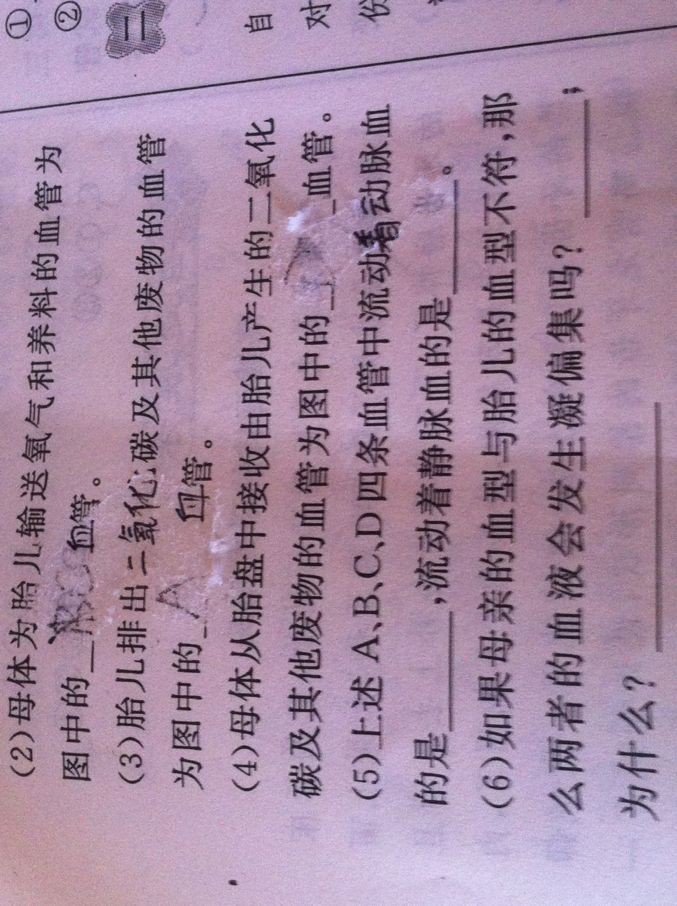 (2)母体为胎儿输送氧气和养料的血管为
图中的 血管。
(3)胎儿排出二氧化碳及其他废物的血管
为图中的 A 血管。
(4)母体从胎盘中接收由胎儿产生的二氧化
碳及其他废物的血管为图中的 血管。
(5)上述A、B、C、D四条血管中流动着动脉血
的是 ,流动着静脉血的是 。
(6)如果母亲的血型与胎儿的血型不符,那
么两者的血液会发生凝偏集吗? ;
为什么?
①
②
二
自
对
份